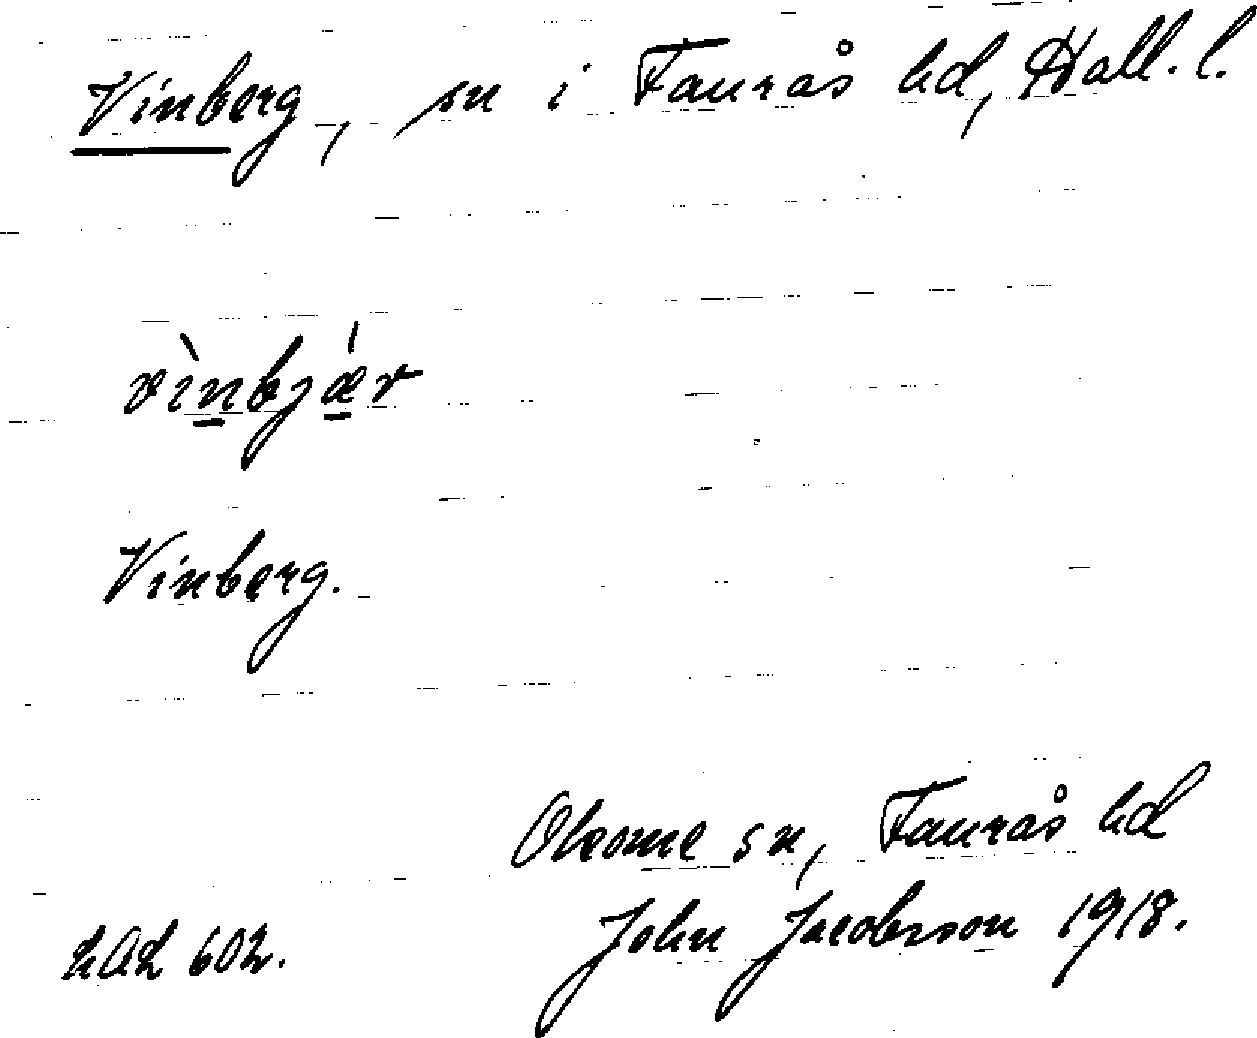 Vinberg, sn i Faurås hd, Hall. l.
vìnbjær
Vinberg.
Okome sn, Faurås hd
LAL 602.
John Jacobsson 1918.